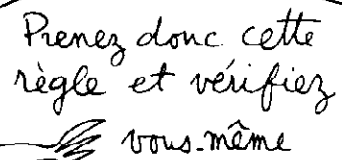 Prenez donc cette
règle et vérifiez
vous-même